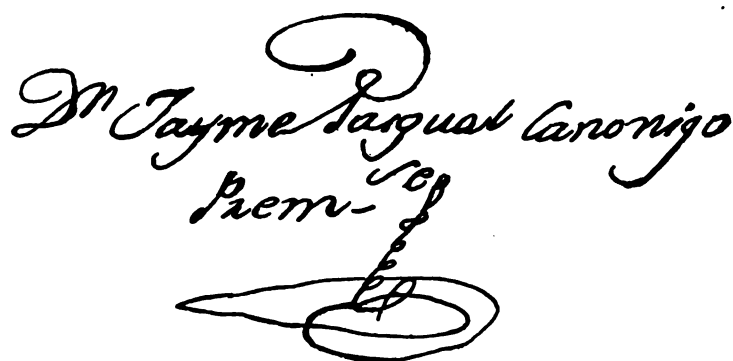 Dn Jayme Pasqual Canonigo
Prem-se